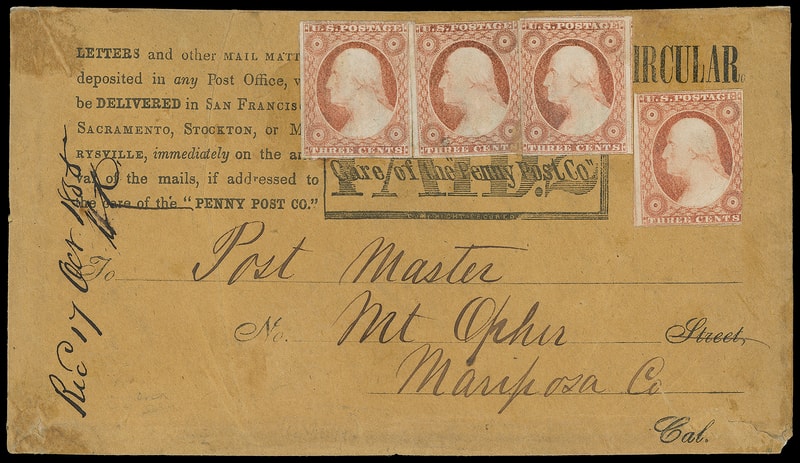 LETTERS and other MAIL MATT
deposited in any Post Office, w
be DELIVERED in SAN FRANCISC
SACRAMENTO, STOCKTON, or MA
RYSVILLE, immediately on the arri
val of the mails, if addressed to
the care of the "PENNY POST CO."
U.S. POSTAGE
THREE CENTS
U.S. POSTAGE
THREE CENTS
U.S. POSTAGE
THREE CENTS
IRCULAR.
U.S. POSTAGE
THREE CENTS
PAID.
Care of the "Penny Post Co."
Rec 17 Oct 1855
To Post Master
No. Mt Opher Street,
Mariposa Co
Cal.